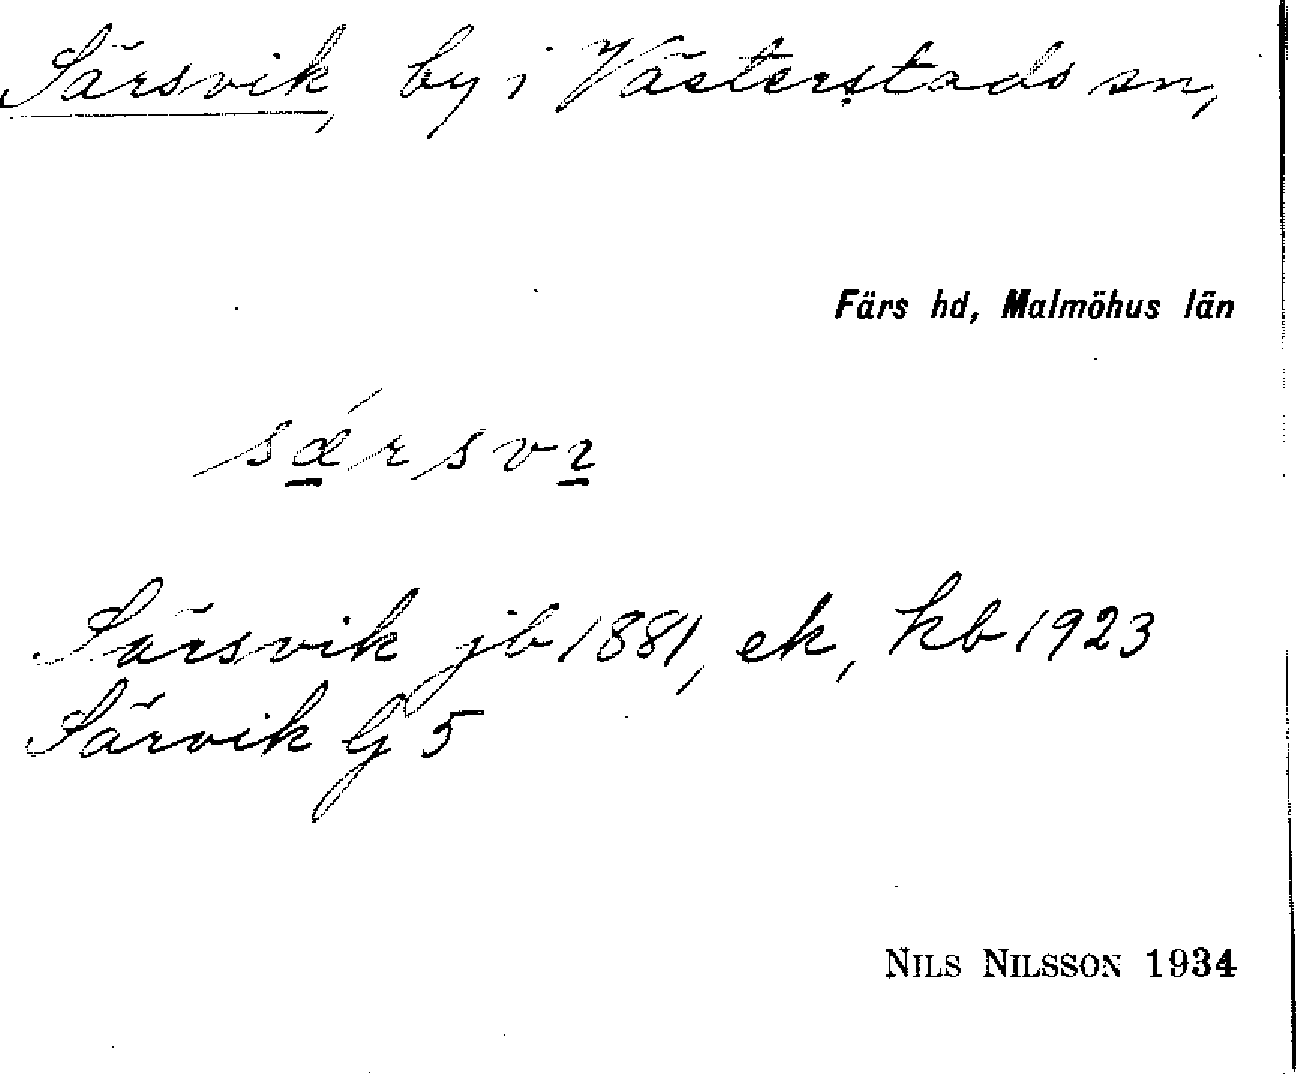 Särsvik, by i Västerstads sn,
Färs hd, Malmöhus län
sǽrsvı
Särsvik jb 1881, ek, kb 1923
Särvik G 5
NILS NILSSON 1934